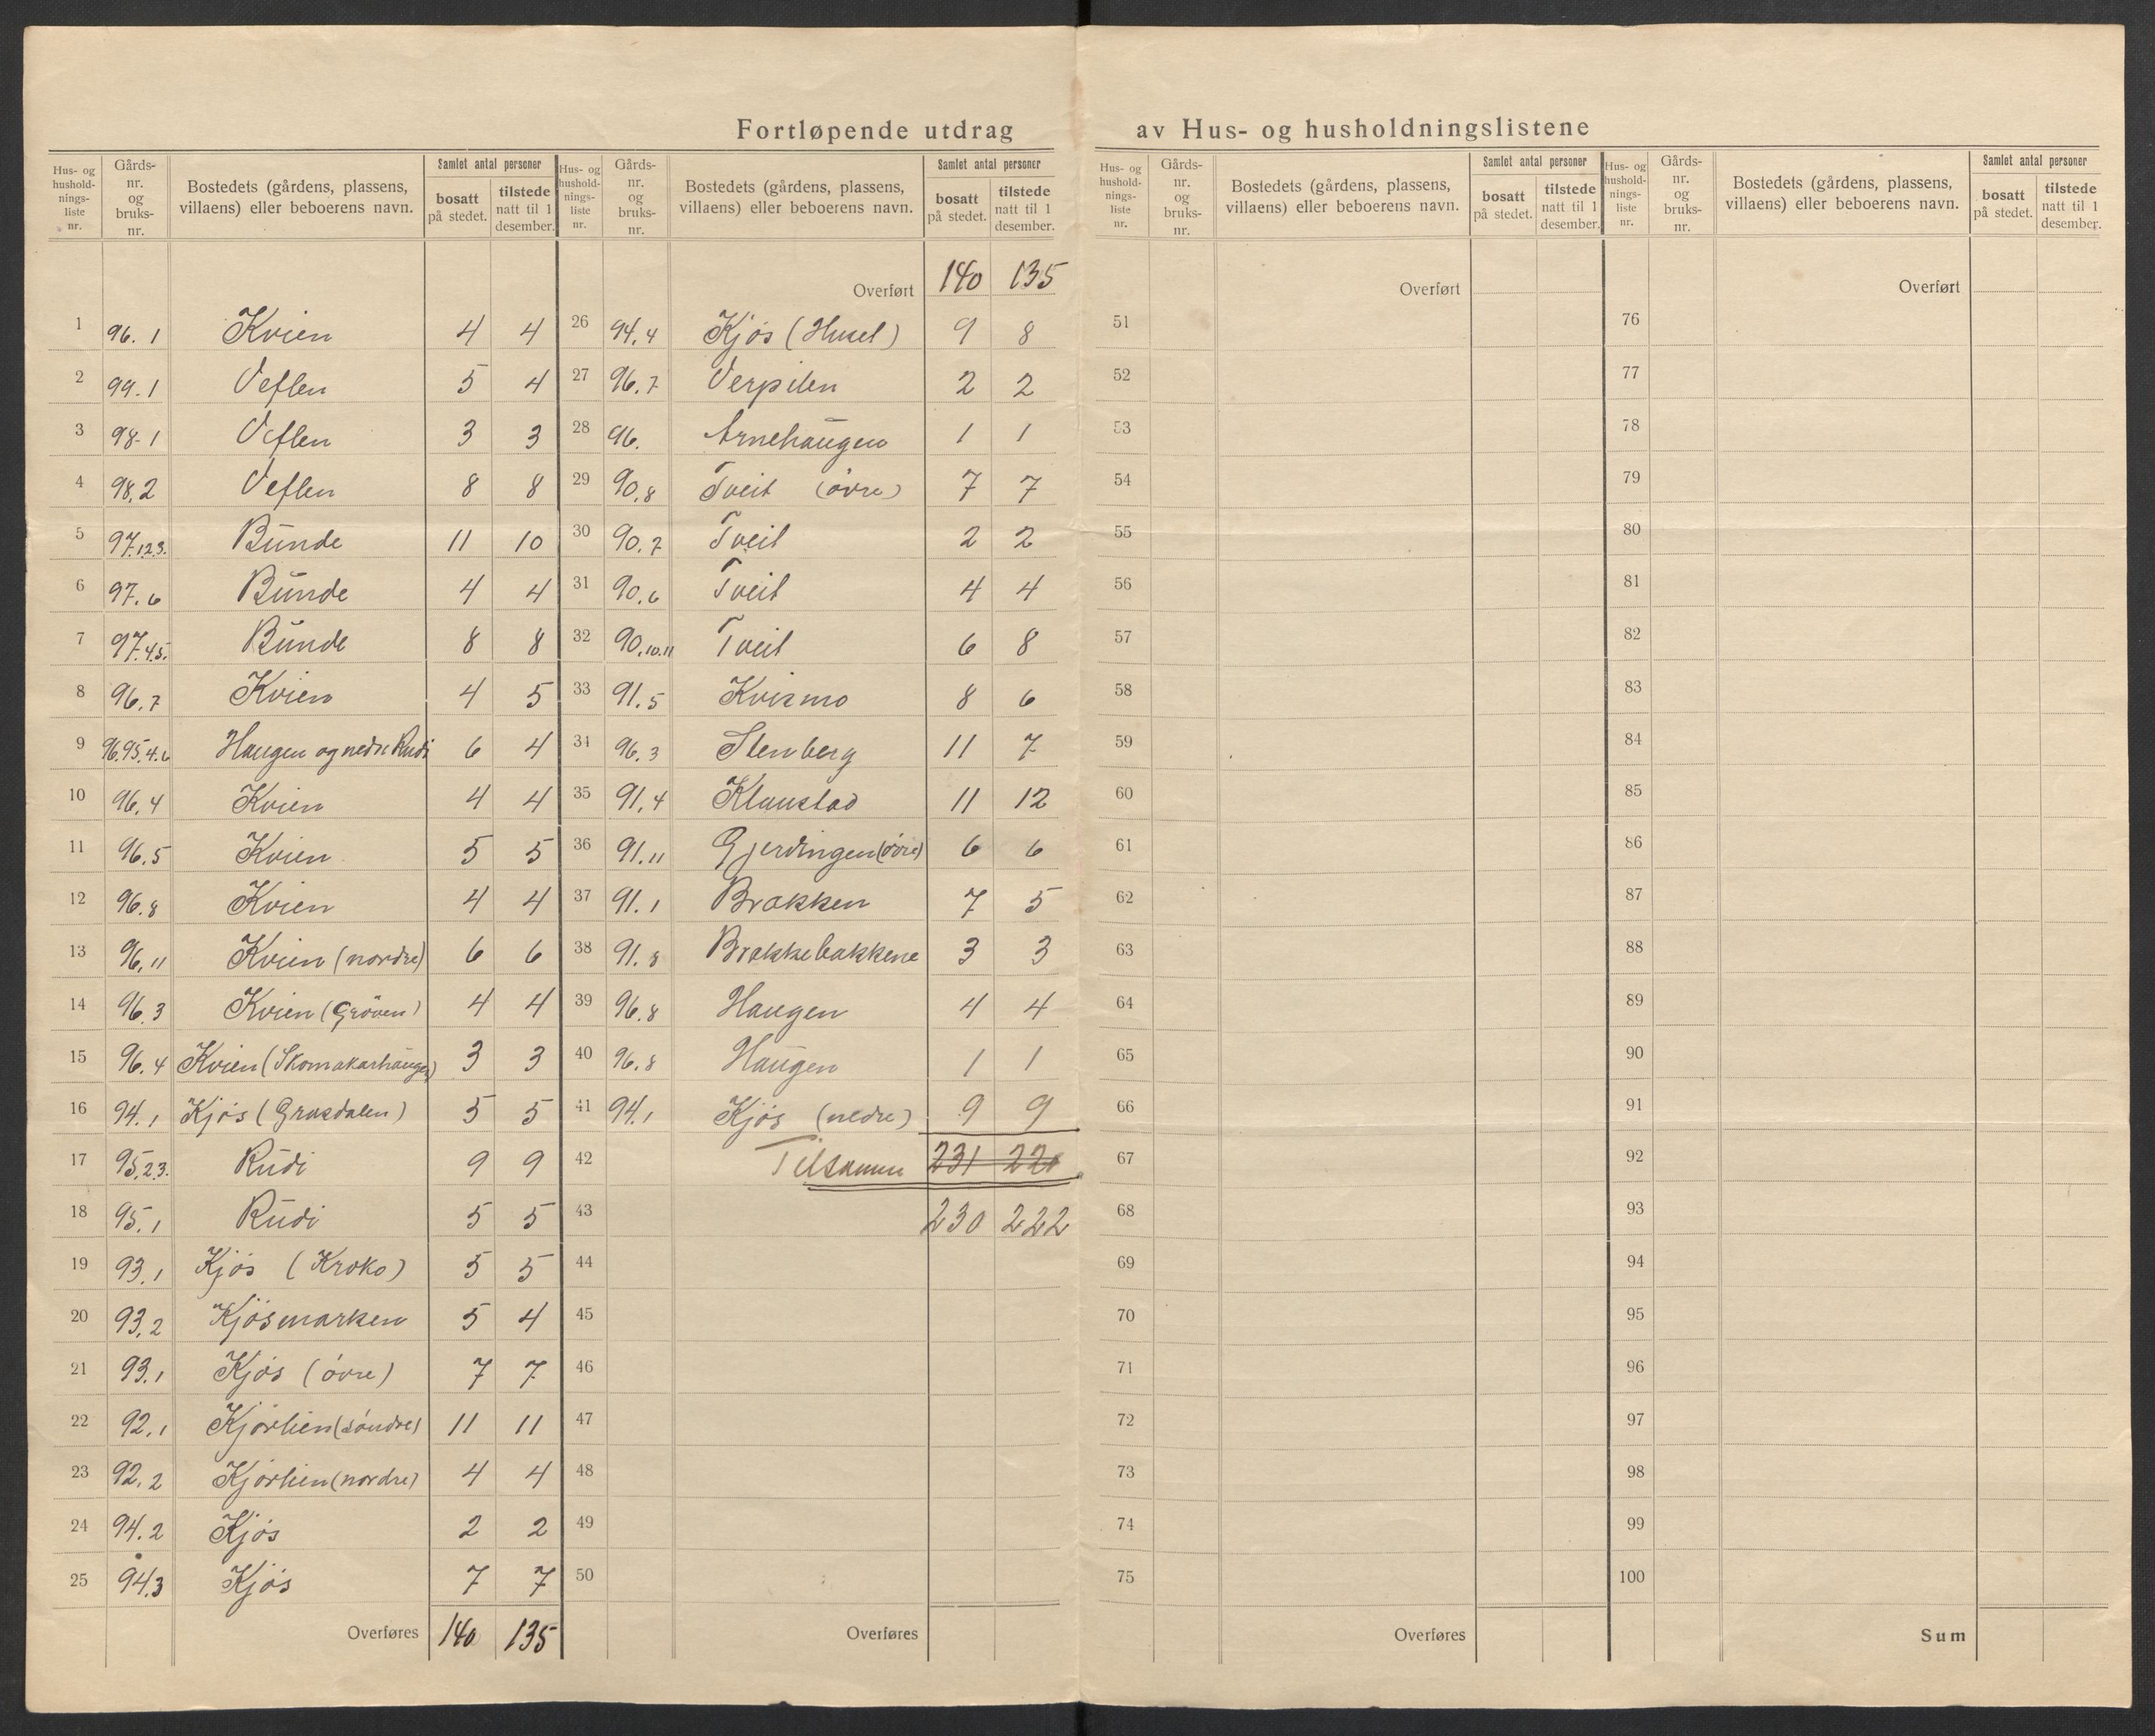 Fortløpende utdrag av Hus- og husholdningslistene
Hus- og hushold-nings-liste nr. Gårds-nr. og bruks-nr. Bostedets (gårdens, plassens, villaens) eller beboerens navn. Samlet antal personer bosatt på stedet. tilstede natt til 1 desember.
1 96.1 Kvien 4 4
2 99.1 Veflen 5 4
3 98.1 Veflen 3 3
4 98.2 Veflen 8 8
5 97.1.2.3. Bunde 11 10
6 97.6 Bunde 4 4
7 97.4.5. Bunde 8 8
8 96.7 Kvien 4 5
9 96.95.4.6 Haugen og nedre Rudi 6 4
10 96.4 Kvien 4 4
11 96.5 Kvien 5 5
12 96.8 Kvien 4 4
13 96.11 Kvien (nordre) 6 6
14 96.3 Kvien (Gröven) 4 4
15 96.4 Kvien (Skomakarhaugen) 3 3
16 94.1 Kjøs (Grusdalen) 5 5
17 95.2.3. Rudi 9 9
18 95.1 Rudi 5 5
19 93.1 Kjøs (Kroko) 5 5
20 93.2 Kjøsmarken 5 4
21 93.1 Kjøs (övre) 7 7
22 92.1 Kjørlien (søndre) 11 11
23 92.2 Kjørlien (nordre) 4 4
24 94.2 Kjøs 2 2
25 94.3 Kjøs 7 7
Overføres 140 135
Hus- og hushold-nings-liste nr. Gårds-nr. og bruks-nr. Bostedets (gårdens, plassens, villaens) eller beboerens navn. Samlet antal personer bosatt på stedet. tilstede natt til 1 desember.
Overført 140 135
26 94.4 Kjøs (Huset) 9 8
27 96.7 Verpilen 2 2
28 96. Arnehaugen 1 1
29 90.8 Tveit (øvre) 7 7
30 90.7 Tveit 2 2
31 90.6 Tveit 4 4
32 90.10.11 Tveit 6 8
33 91.5 Kvismo 8 6
34 96.3 Stenberg 11 7
35 91.4 Klaustad 11 12
36 91.11 Gjerdingen (övre) 6 6
37 91.1 Brakken 7 5
38 91.8 Brakkebakkene 3 3
39 96.8 Haugen 4 4
40 96.8 Haugen 1 1
41 94.1 Kjøs (nedre) 9 9
42 Tilsamen 231 220
43 230 222
44
45
46
47
48
49
50
Overføres
Hus- og hushold-nings-liste nr. Gårds-nr. og bruks-nr. Bostedets (gårdens, plassens, villaens) eller beboerens navn. Samlet antal personer bosatt på stedet. tilstede natt til 1 desember.
Overført
51
52
53
54
55
56
57
58
59
60
61
62
63
64
65
66
67
68
69
70
71
72
73
74
75
Overføres
Hus- og hushold-nings-liste nr. Gårds-nr. og bruks-nr. Bostedets (gårdens, plassens, villaens) eller beboerens navn. Samlet antal personer bosatt på stedet. tilstede natt til 1 desember.
Overført
76
77
78
79
80
81
82
83
84
85
86
87
88
89
90
91
92
93
94
95
96
97
98
99
100
Sum